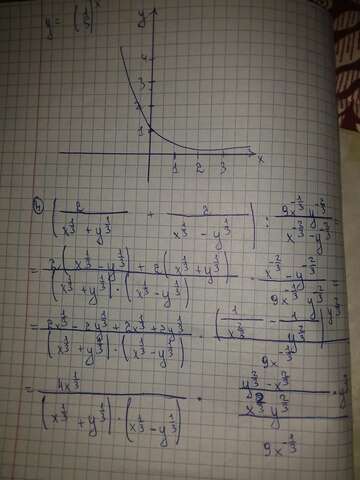 y = (1/2)^x
y
4
3
2
1
1 2 3 x
(2/(x^{1/3} + y^{1/3}) + 2/(x^{1/3} - y^{1/3})) : 9x^{-1/3} y^{-2/3}/(x^{-2/3} - y^{-2/3}) =
= (2(x^{1/3} - y^{1/3}) + 2(x^{1/3} + y^{1/3}))/((x^{1/3} + y^{1/3}) · (x^{1/3} - y^{1/3})) · (x^{-2/3} - y^{-2/3})/(9x^{-1/3} y^{-2/3}) =
= (2x^{1/3} - 2y^{1/3} + 2x^{1/3} + 2y^{1/3})/((x^{1/3} + y^{1/3}) · (x^{1/3} - y^{1/3})) · (1/x^{2/3} - 1/y^{2/3})/(9x^{-1/3}
= 4x^{1/3}/((x^{1/3} + y^{1/3}) · (x^{1/3} - y^{1/3})) · ((y^{2/3} - x^{2/3})/(x^{2/3} y^{2/3}))/(9x^{-1/3}